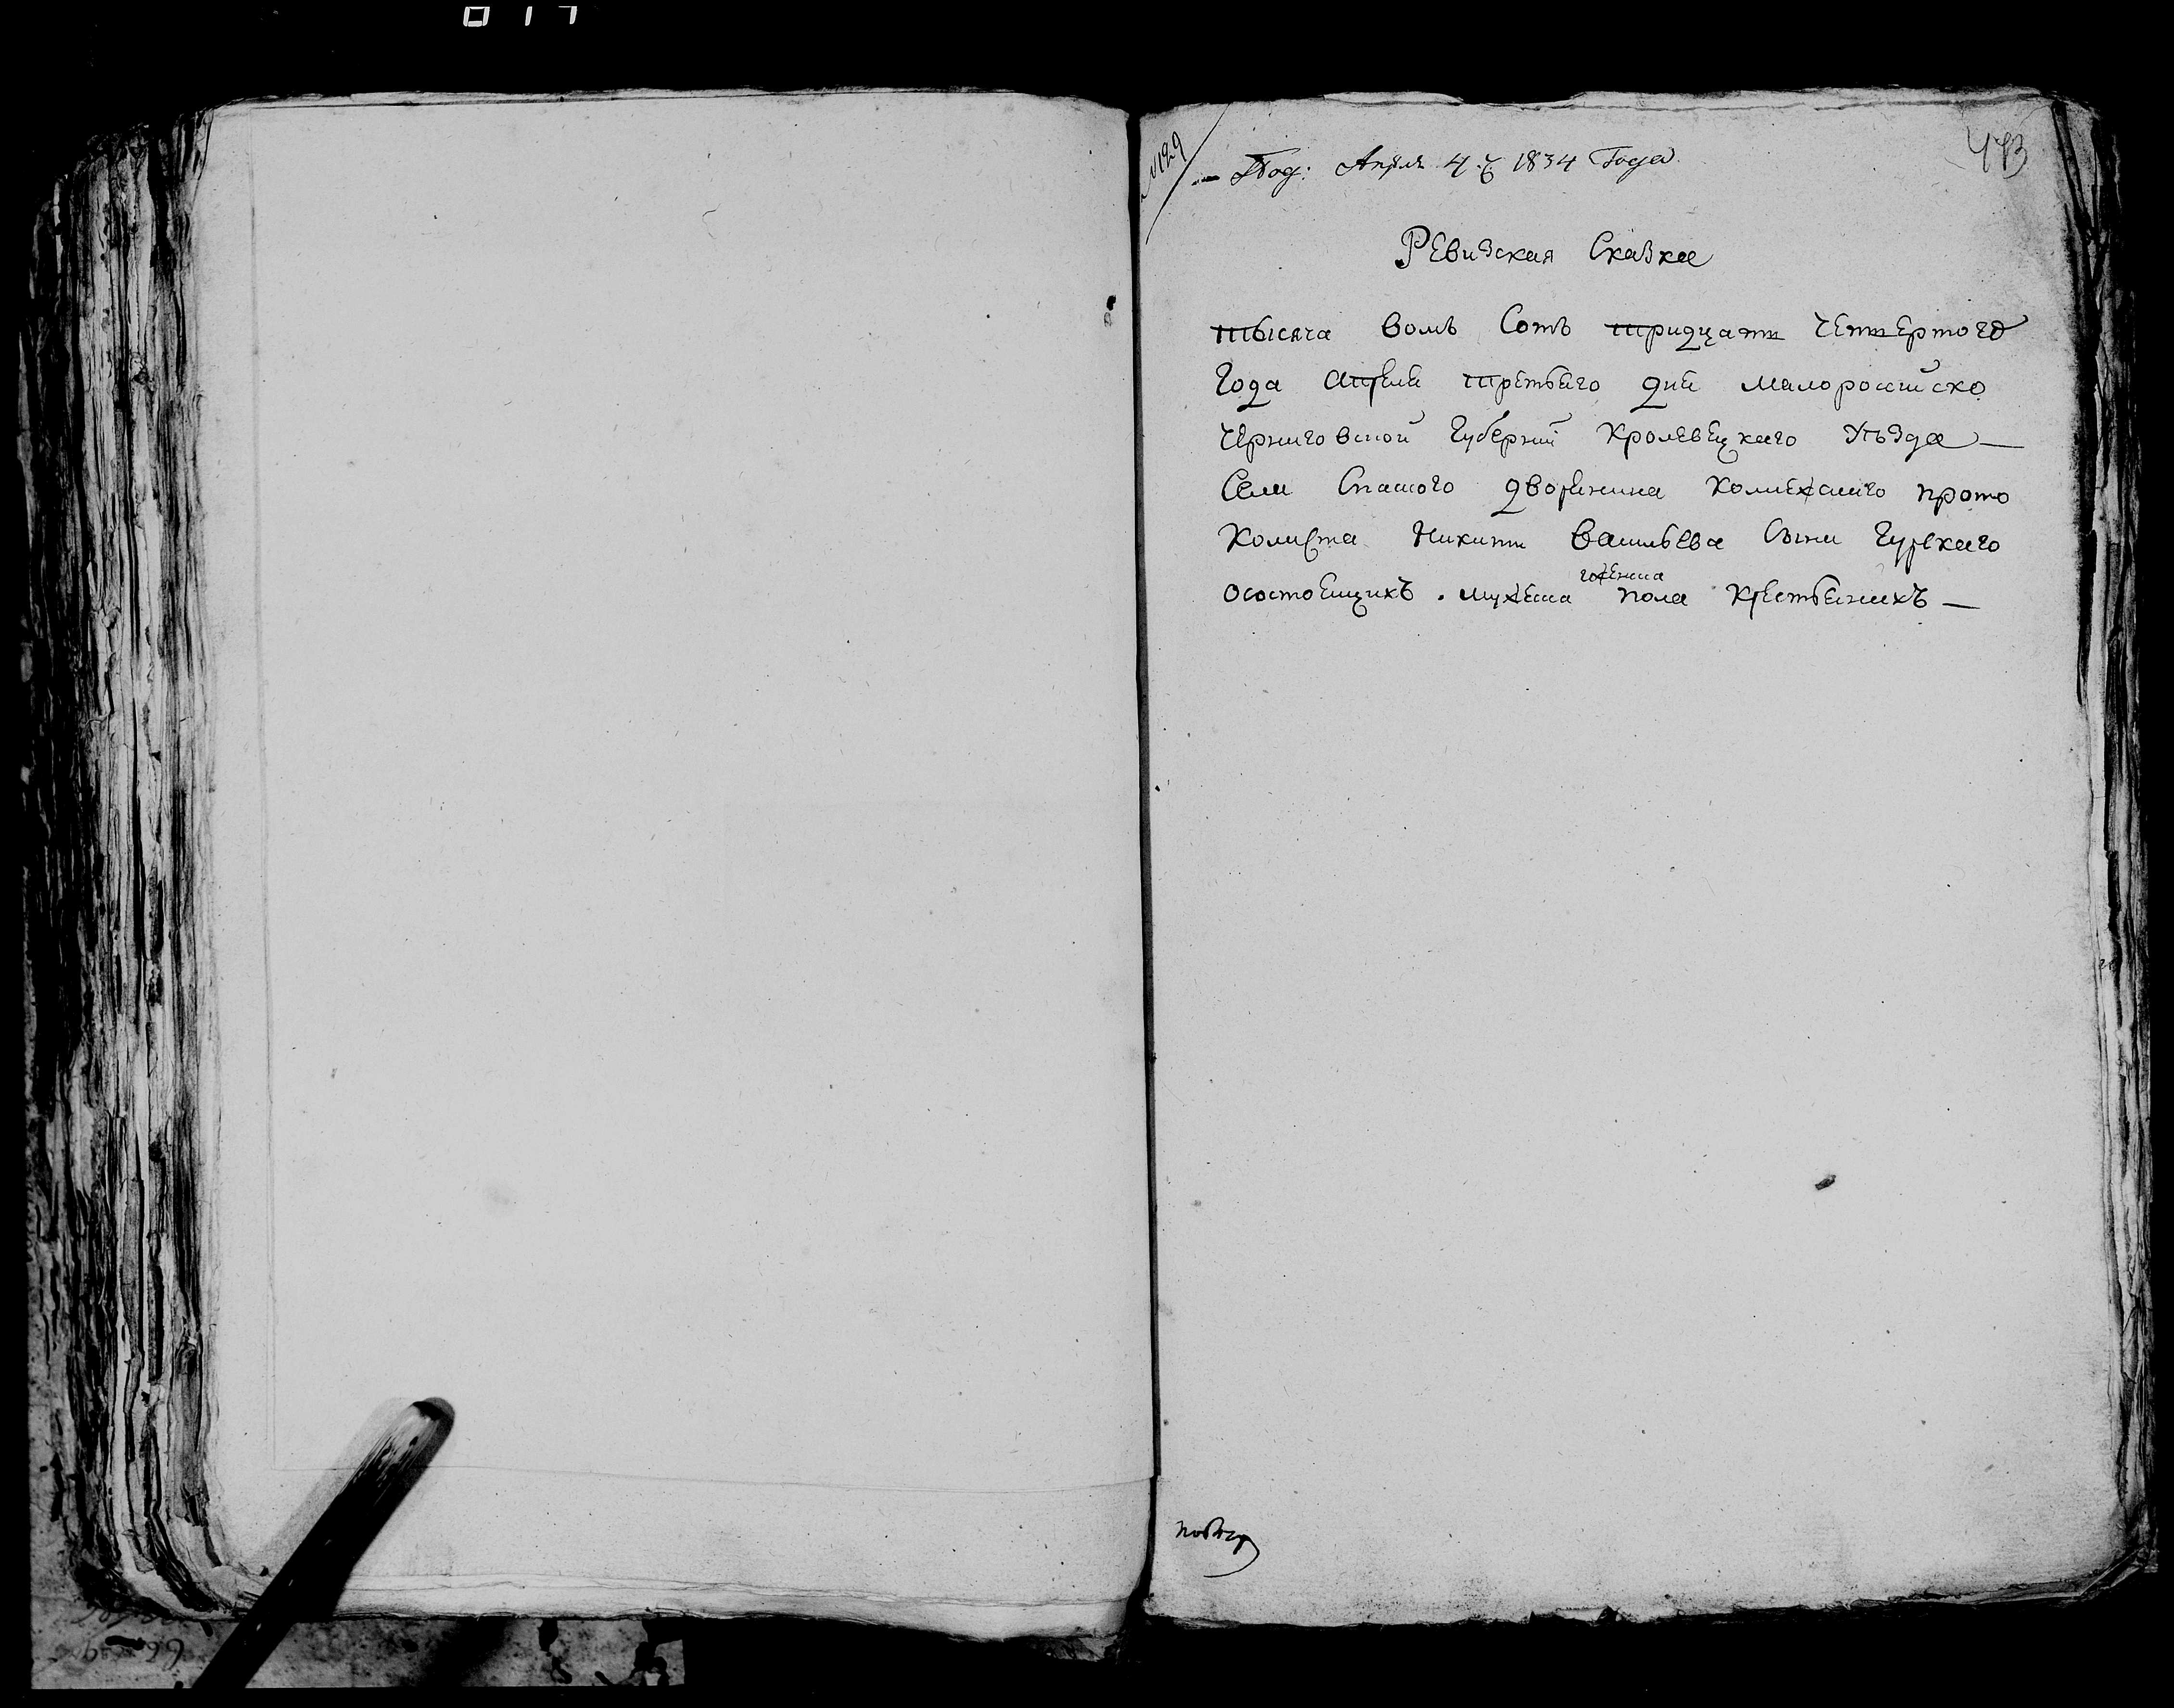 №129
Под: Апреля 4. 1834 Года
473
Ревизская Сказка
тысяча вомъ Сотъ тридцати Четвертого
Года апреля третьяго дня малоросийско
Черниговской Губернии Кролевецкаго Уезда —
Села Спаского дворянина Колежскаго прото
Колиста Никити васильева Сына Гурскаго
женска
осостоящихъ мужеска пола Крестьянихъ —